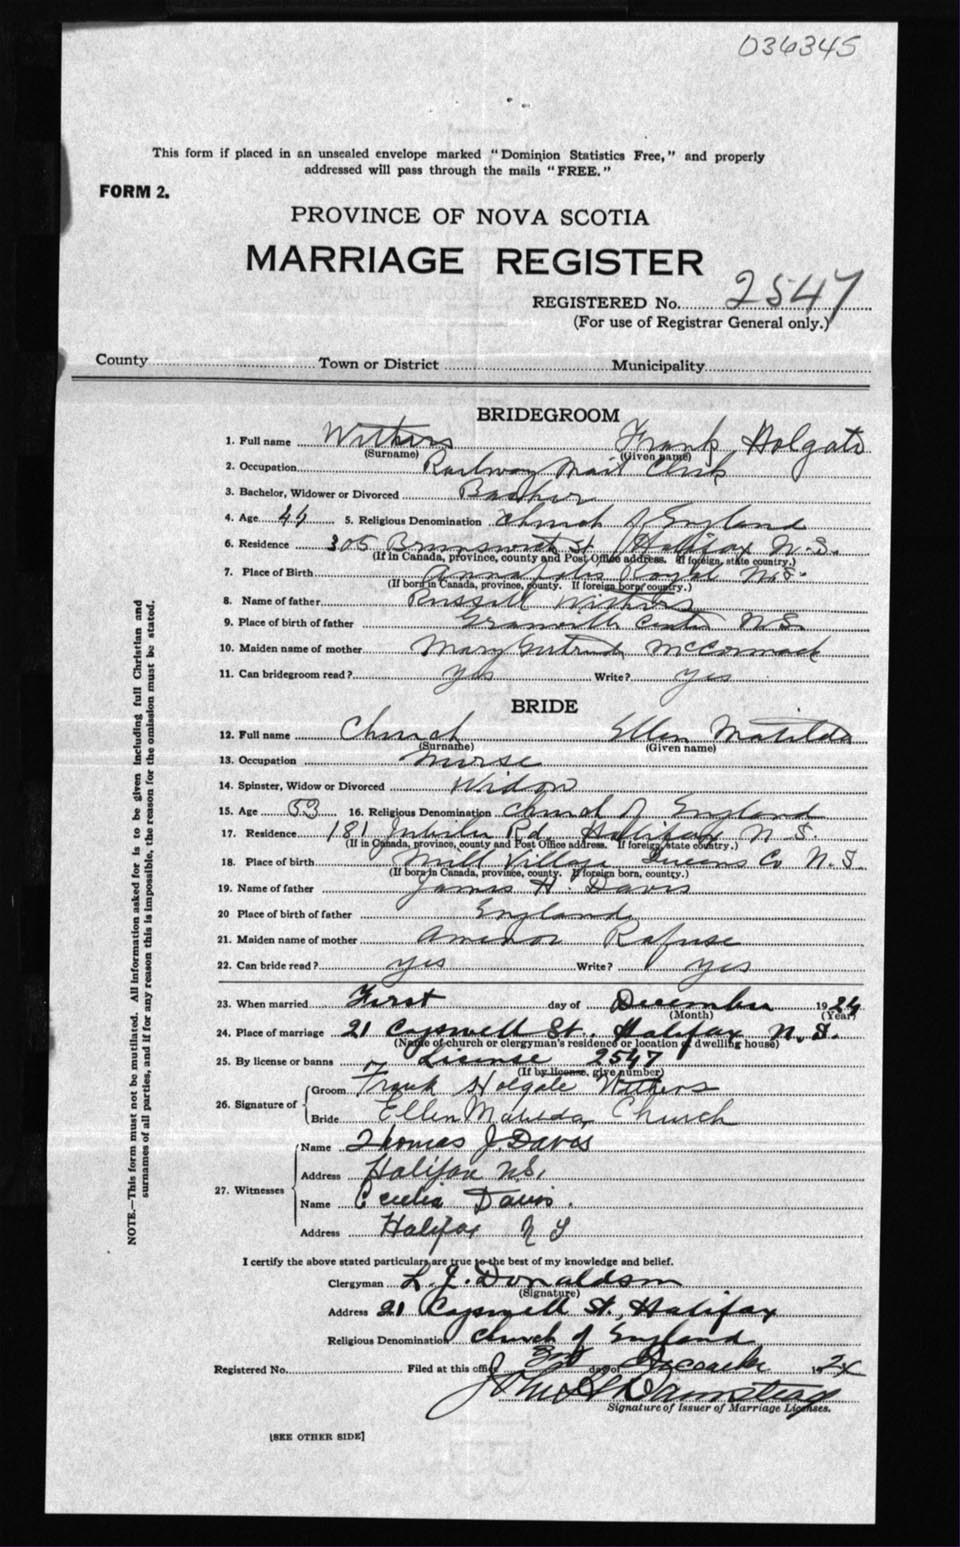 036345
This form if placed in an unsealed envelope marked "Dominion Statistics Free," and properly
addressed will pass through the mails "FREE."
FORM 2.
PROVINCE OF NOVA SCOTIA
MARRIAGE REGISTER
REGISTERED No. 2547
(For use of Registrar General only.)
County Town or District Municipality
BRIDEGROOM
1. Full name Withers Frank Holgate
(Surname) (Given name)
2. Occupation Railway Mail Clerk
3. Bachelor, Widower or Divorced
4. Age 44 5. Religious Denomination Church of England
6. Residence 305 Brunswick St Halifax N.S.
(If in Canada, province, county and Post Office address. If foreign, state country.)
7. Place of Birth Annapolis Royal N.S.
(If born in Canada, province, county. If foreign born, country.)
8. Name of father Russell Withers
9. Place of birth of father Granville Centre N.S.
10. Maiden name of mother Mary Gertrude McCormack
11. Can bridegroom read? Yes Write? yes
BRIDE
12. Full name Church Ellen Matilda
(Surname) (Given name)
13. Occupation Nurse
14. Spinster, Widow or Divorced Widow
15. Age 53 16. Religious Denomination Church of England
17. Residence 181 Jubilee Rd. Halifax N.S.
(If in Canada, province, county and Post Office address. If foreign, state country.)
18. Place of birth Mill Village Queens Co N.S.
(If born in Canada, province, county. If foreign born, country.)
19. Name of father James H. Davis
20 Place of birth of father England
21. Maiden name of mother Rafuse
22. Can bride read? yes Write? yes
23. When married First day of December 1924
(Month) (Year)
24. Place of marriage 21 Cogswell St., Halifax N.S.
(Name of church or clergyman's residence or location of dwelling house)
25. By license or banns License 2547
(If by license, give number)
26. Signature of
Groom Frank Holgate Withers
Bride Ellen Matilda Church
27. Witnesses
Name Thomas J. Davis
Address Halifax N.S.
Name Cecelia Davis.
Address Halifax N S
I certify the above stated particulars are true to the best of my knowledge and belief.
Clergyman L. J. Donaldson
(Signature)
Address 21 Cogswell St., Halifax
Religious Denomination Church of England
Registered No. Filed at this office 3rd day of December 1924
Signature of Issuer of Marriage Licenses.
[SEE OTHER SIDE]
NOTE.—This form must not be mutilated. All information asked for is to be given including full Christian and
surnames of all parties, and if for any reason this is impossible, the reason for the omission must be stated.